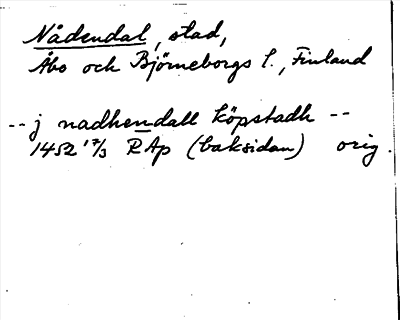 Nådendal, stad,
Åbo och Björneborgs l., Finland
-- j nadhendall köpstadh --
1452 17/3 RAp (baksidan) orig.